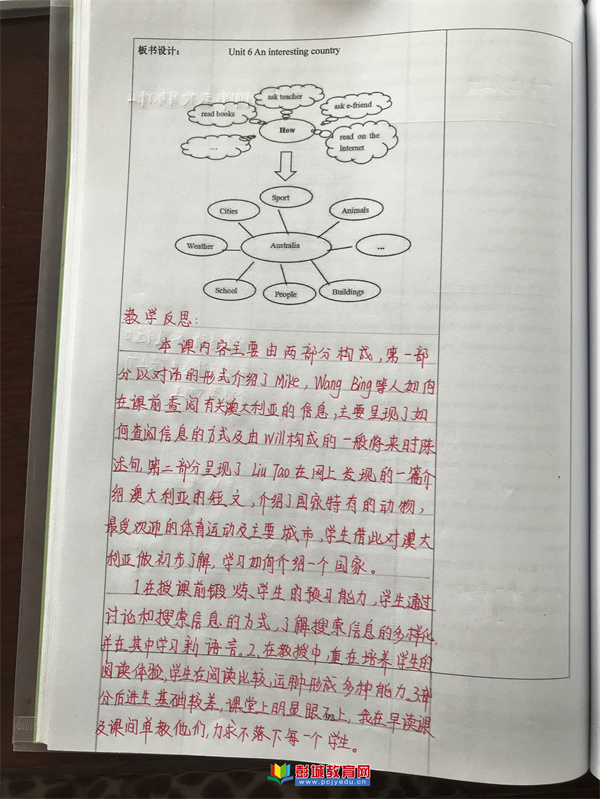 板书设计： Unit 6 An interesting country
ask teacher
read books
ask e-friend
How
read on the Internet
...
Sport
Cities
Animals
Weather
Australia
...
School
People
Buildings
教学反思：
本课内容主要由两部分构成，第一部
分以对话的形式介绍了Mike，Wang Bing等人如何
在课前查阅有关澳大利亚的信息，主要呈现了如
何查阅信息的方式及由will构成的一般将来时陈
述句，第二部分呈现了Liu Tao在网上发现的一篇介
绍澳大利亚的短文，介绍了国家特有的动物，
最受欢迎的体育运动及主要城市，学生借此对澳大
利亚做初步了解，学习如何介绍一个国家。
1.在授课前锻炼学生的预习能力，学生通过
讨论和搜索信息的方式，了解搜索信息的多样化，
并在其中学习到语言。2.在教授中，重在培养学生的
阅读体验，学生在阅读比较，运用中形成多种能力。3.部
分后进生基础较差，课堂上明显跟不上，我在早读课
及课间单教他们，力求不落下每一个学生。
彭城教育网
www.pcjyedu.cn